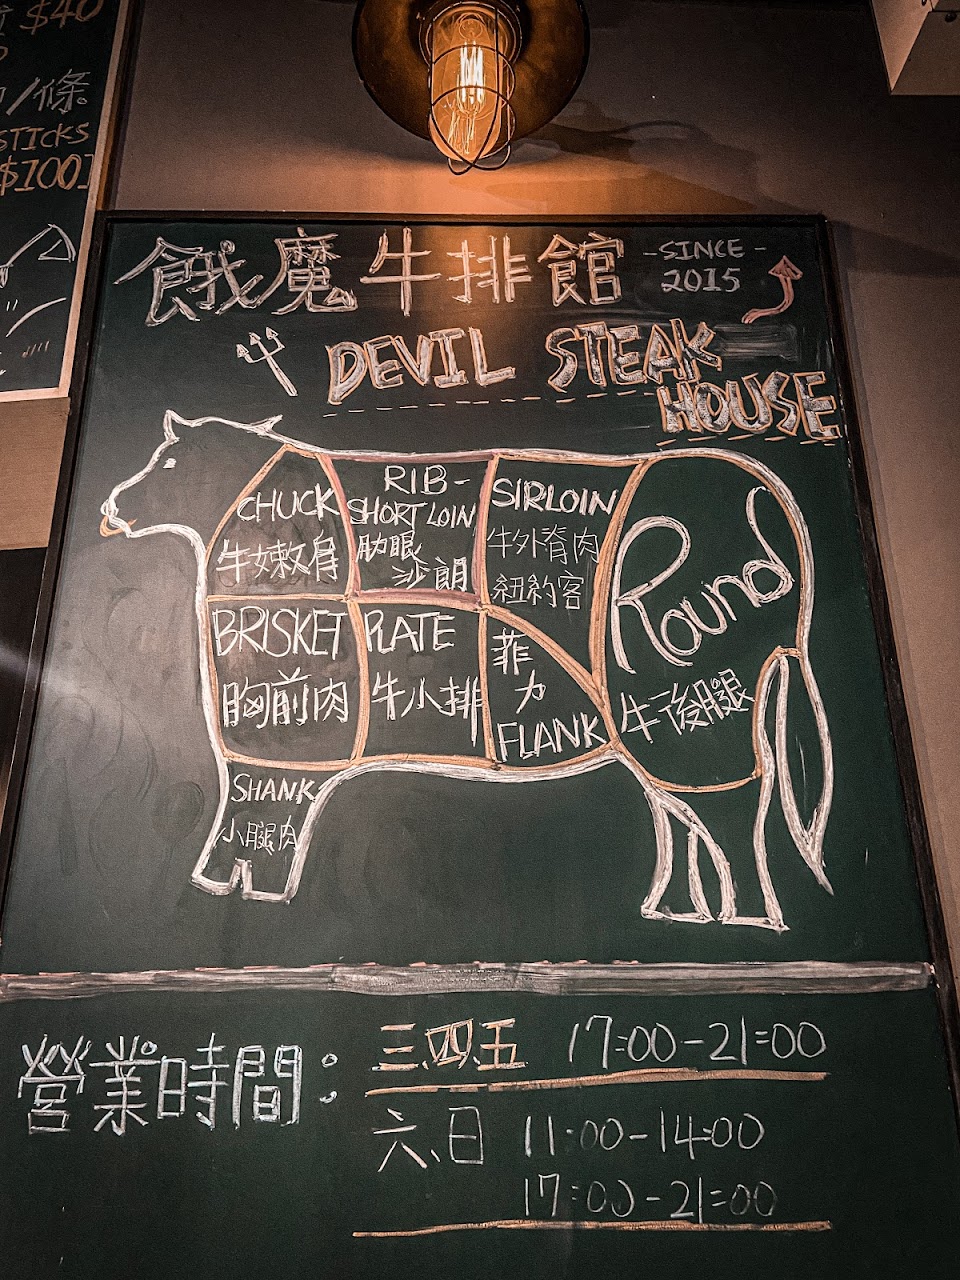 $40
/條
STICKS
$100]
餓魔牛排館
-SINCE-
2015
DEVIL STEAK
HOUSE
CHUCK
牛嫩肩
RIB-
SHORT LOIN
肋眼
沙朗
SIRLOIN
牛外脊肉
紐約客
Round
牛後腿
BRISKET
胸前肉
PLATE
牛小排
菲
力
FLANK
SHANK
小腿肉
營業時間:
三.四.五 17:00-21:00
六.日 11:00-14:00
17:00-21:00